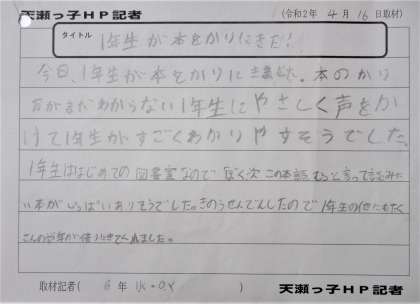 天瀬っ子HP記者 (令和2年 4月 16日取材)
タイトル 1年生が本をかりにきた!
今日、1年生が本をかりにきました。本のかり
方がまだわからない1年生にやさしく声をか
けて1年生がすごくわかりやすそうでした。
1年生ははじめての図書室なのでぼくは この本読もうと言って読みた
い本がいっぱいありそうでした。きのうせんでんしたので1年生の他にもたく
さんの学年が借りにきてくれました。
取材記者( 6年 )
天瀬っ子HP記者